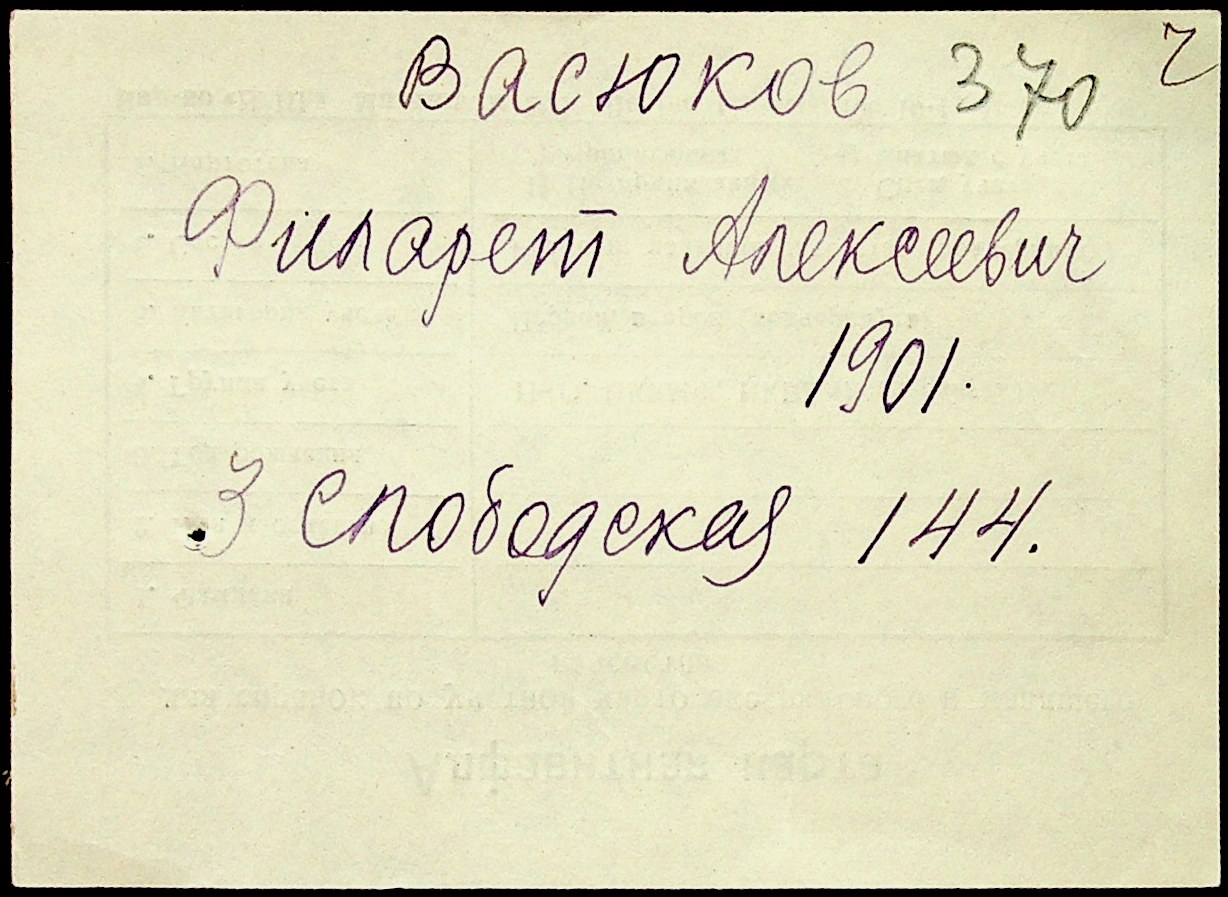 Васюков 370 ч
Филарет Алексеевич
1901.
3 Слободская 144.